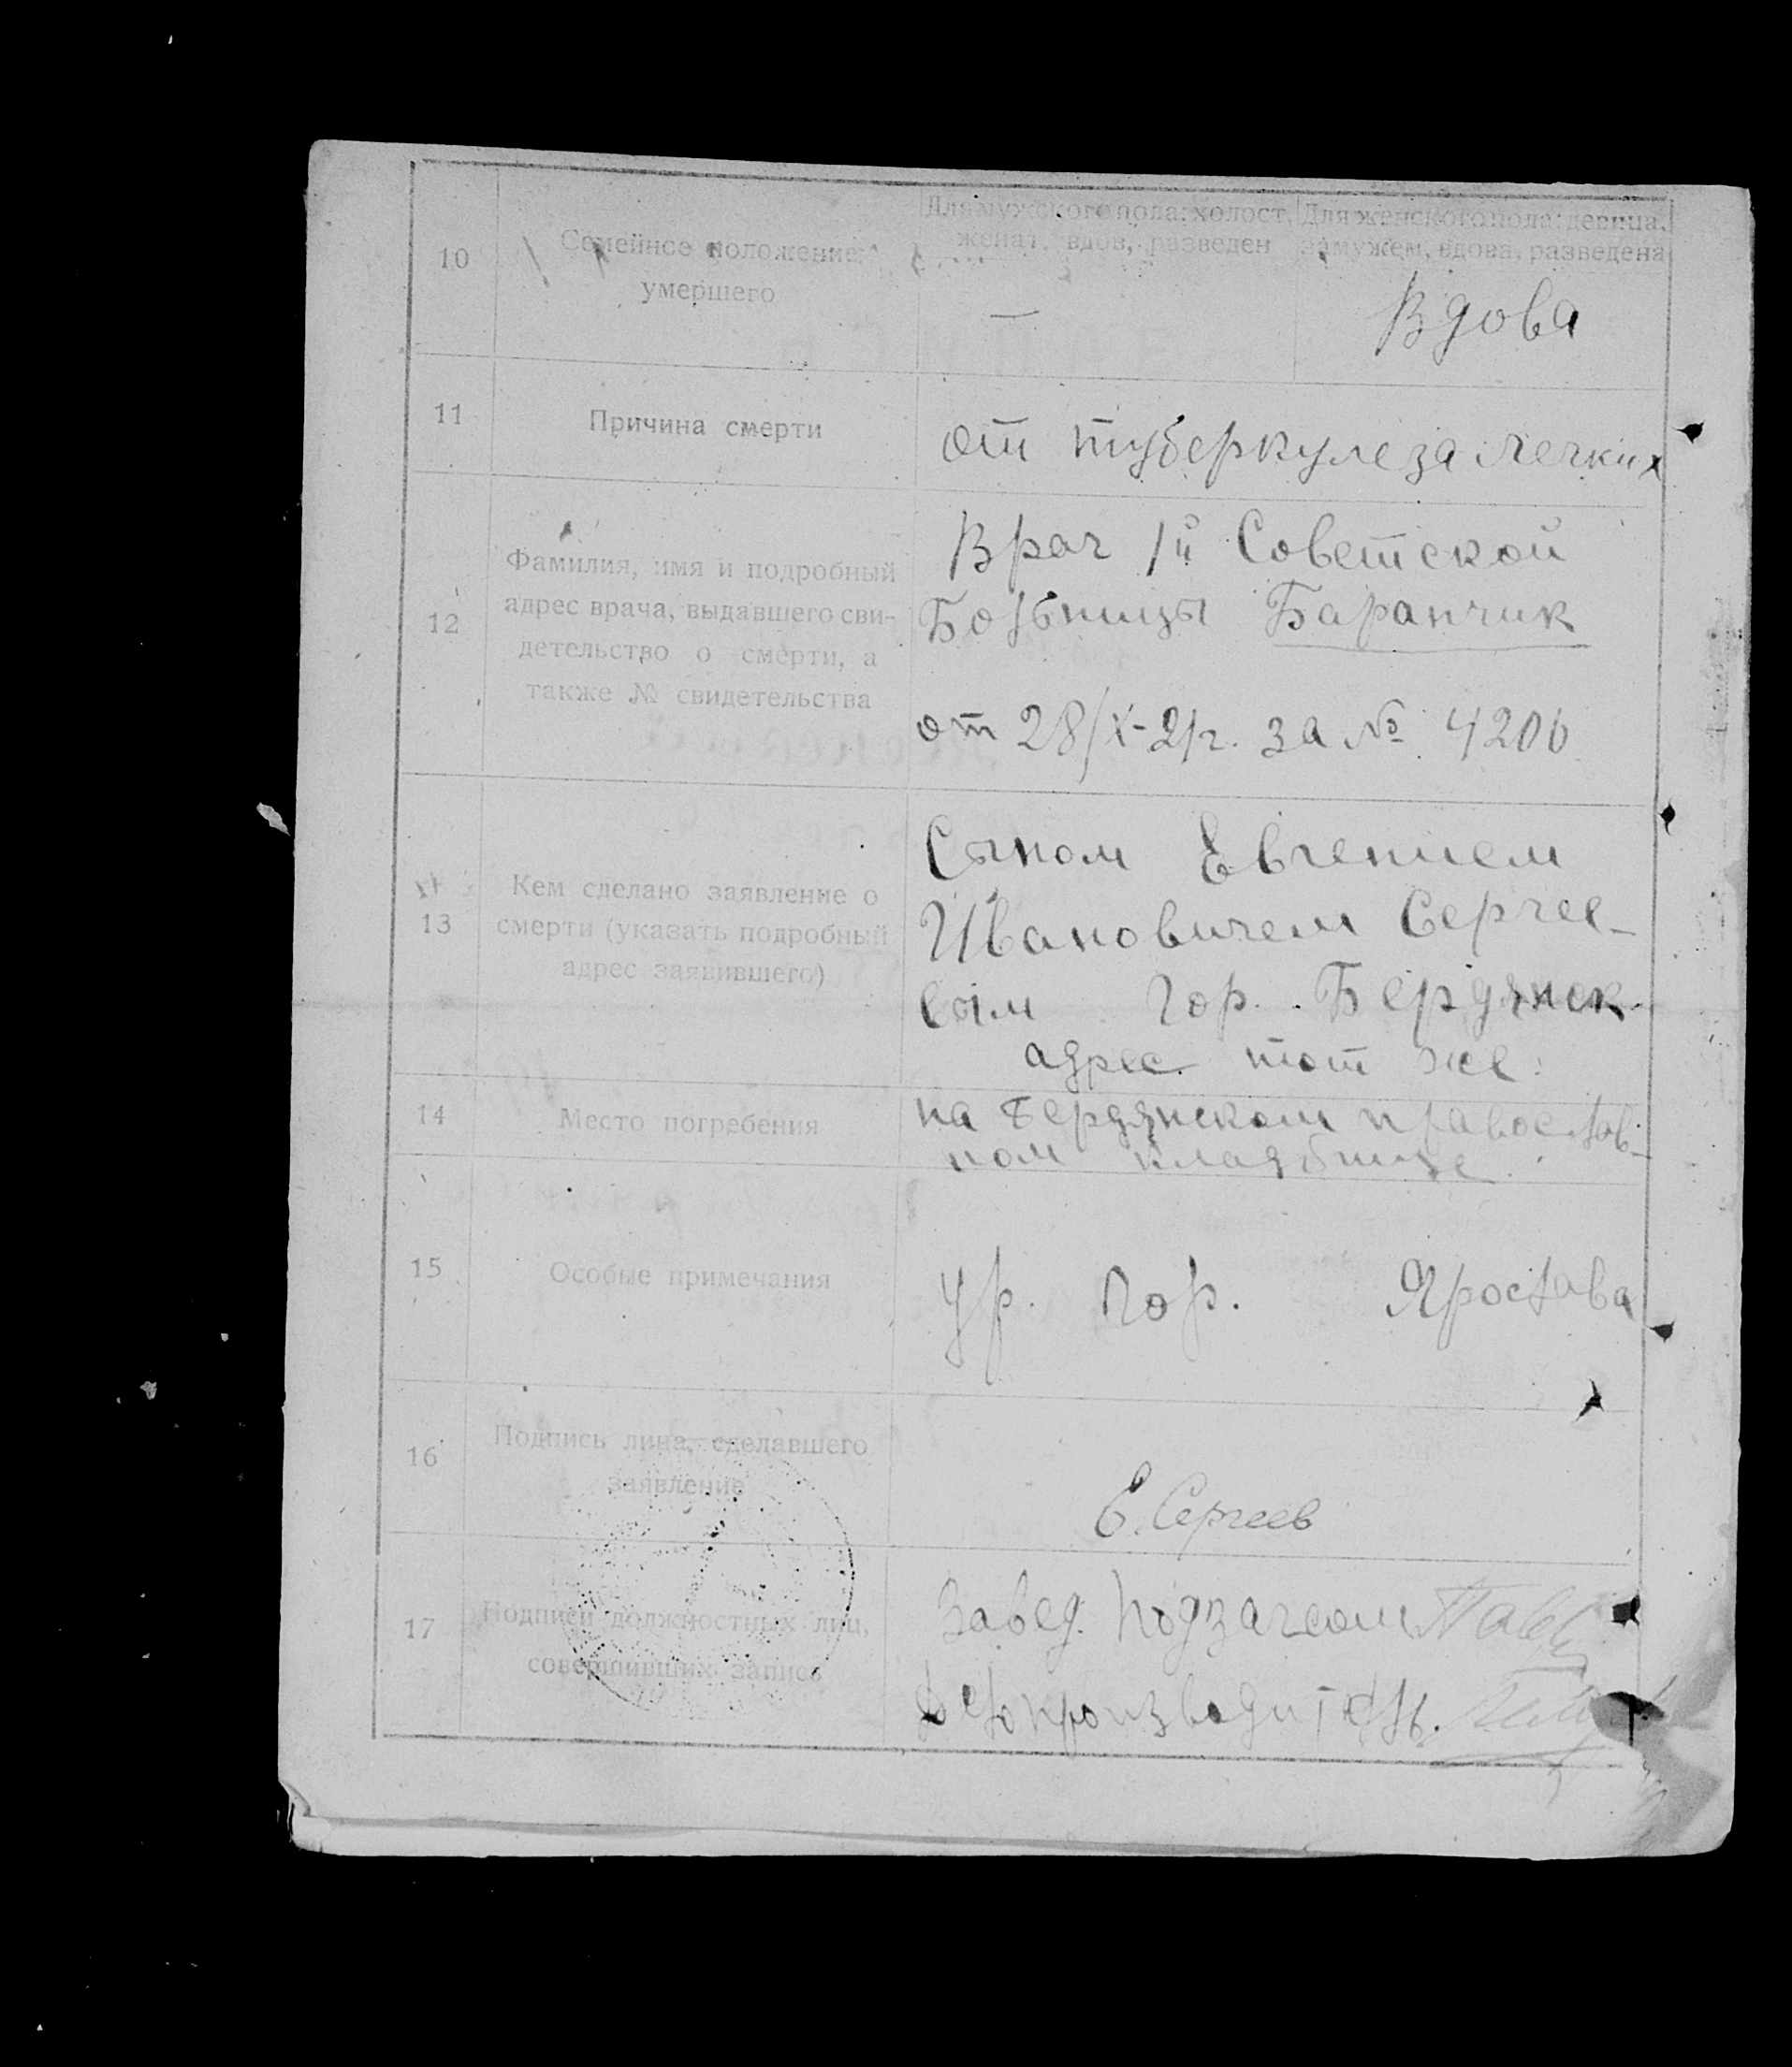 Для мужского пола: холост, женат, вдов, разведен
Для женского пола: девица, замужем, вдова, разведена
10
Семейное положение
умершего
—
Вдова
11
Причина смерти
от туберкулеза легких
12
Фамилия, имя и подробный
адрес врача, выдавшего сви-
детельство о смерти, а
также № свидетельства
Врач 1й Советской
Больницы Баранчик
от 28/X-21г. за №
13
Кем сделано заявление о
смерти (указать подробный
адрес заявившего)
Сыном Евгением
Ивановичем Сергее-
вым Гор. Бердянск
адрес тот же.
14
Место погребения
на Бердянском православ-
ном кладбище
15
Особые примечания
ур. гор. Ярослава
16
Подпись лица, сделавшего
заявление
Е. Сергеев
17
Подписи должностных лиц,
совершивших запись
Завед. Подзагсом
Делопроизводитель.